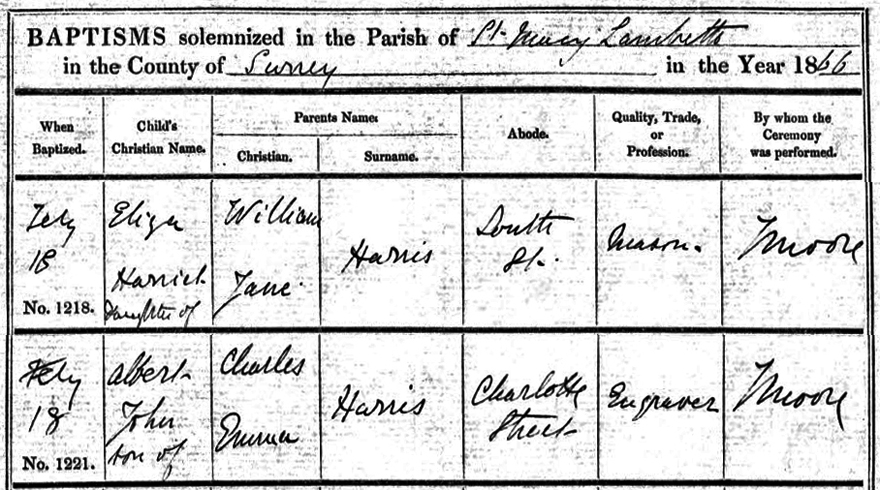 BAPTISMS solemnized in the Parish of St. Mary Lambeth
in the County of Surrey in the Year 1866
When Baptized.
Child's Christian Name.
Parents Name:
Christian.
Surname.
Abode.
Quality, Trade, or Profession.
By whom the Ceremony was performed.
Feby
18
No. 1218.
Eliza
Harriet
Daughter of
William
Jane
Harris
South
St.
Mason.
T Moore
Feby
18
No. 1221.
Albert
John
son of
Charles
Emma
Harris
Charlotte
Street
Engraver
T Moore